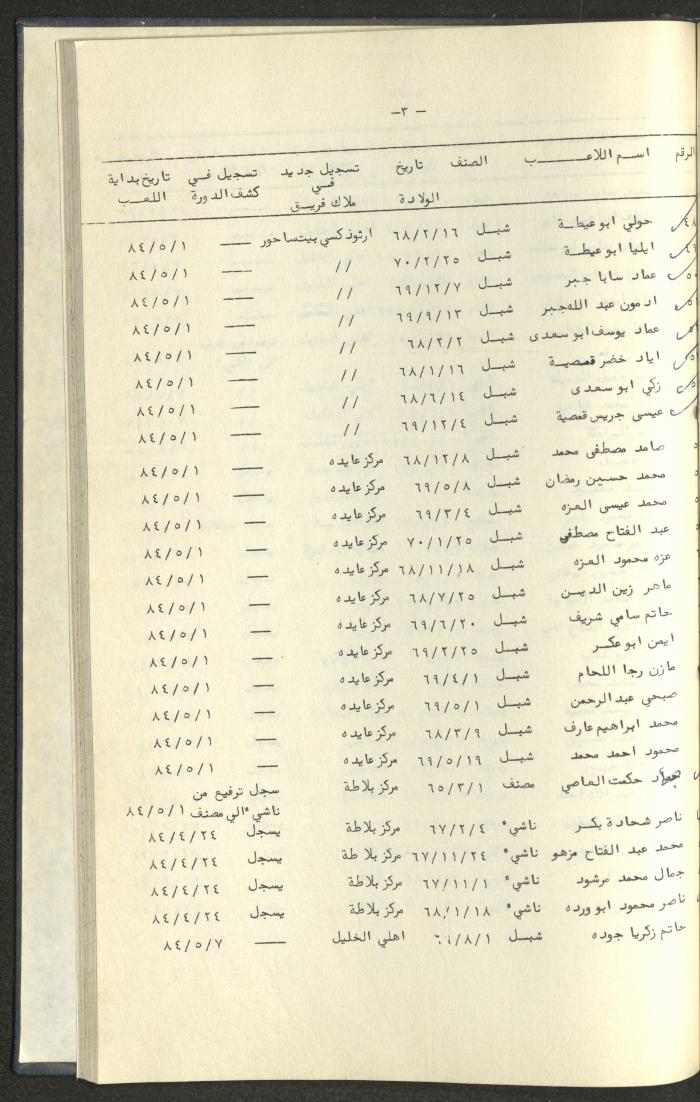 -٣-
الرقم اسم اللاعب الصنف تاريخ الولادة تسجيل جديد في ملاك فريق تسجيل في كشف الدورة تاريخ بداية اللعب
٤٨ حولي ابو عيطة شبل ٦٨/٢/١٦ ارثوذكسي بيتساحور — ٨٤/٥/١
٤٩ ايليا ابو عيطة شبل ٧٠/٢/٢٥ // — ٨٤/٥/١
٥٠ عماد سابا جبر شبل ٦٩/١٢/٧ // — ٨٤/٥/١
ادمون عبد الله جبر شبل ٦٩/٩/١٣ // — ٨٤/٥/١
عماد يوسف ابو سعدى شبل ٦٨/٢/٢ // — ٨٤/٥/١
اياد خضر قمصية شبل ٦٨/١/١٦ // — ٨٤/٥/١
زكي ابو سعدى شبل ٦٨/٦/١٤ // — ٨٤/٥/١
عيسى جريس قمصية شبل ٦٩/١٢/٤ // — ٨٤/٥/١
صامد مصطفى محمد شبل ٦٨/١٢/٨ مركز عايده — ٨٤/٥/١
محمد حسين رمضان شبل ٦٩/٥/٨ مركز عايده — ٨٤/٥/١
محمد عيسى العزه شبل ٦٩/٣/٤ مركز عايده — ٨٤/٥/١
عبد الفتاح مصطفى شبل ٧٠/١/٢٥ مركز عايده — ٨٤/٥/١
عزه محمود العزه شبل ٦٨/١١/١٨ مركز عايده — ٨٤/٥/١
ماهر زين الدين شبل ٦٨/٧/٢٥ مركز عايده — ٨٤/٥/١
حاتم سامي شريف شبل ٦٩/٦/٢٠ مركز عايده — ٨٤/٥/١
ايمن ابو عكر شبل ٦٩/٢/٢٥ مركز عايده — ٨٤/٥/١
مازن رجا اللحام شبل ٦٩/٤/١ مركز عايده — ٨٤/٥/١
صبحي عبد الرحمن شبل ٦٩/٥/١ مركز عايده — ٨٤/٥/١
محمد ابراهيم عارف شبل ٦٨/٣/٩ مركز عايده — ٨٤/٥/١
محمود احمد محمد شبل ٦٩/٥/١٩ مركز عايده — ٨٤/٥/١
حكمت العاصي مصنف ٦٥/٣/١ مركز بلاطة سجل ترفيع من
ناشيء الي مصنف ٨٤/٥/١
ناصر شحادة بكر ناشيء ٦٧/٢/٤ مركز بلاطة يسجل ٨٤/٤/٢٤
محمد عبد الفتاح مزهو ناشيء ٦٧/١١/٢٤ مركز بلاطة يسجل ٨٤/٤/٢٤
جمال محمد مرشود ناشيء ٦٧/١١/١ مركز بلاطة يسجل ٨٤/٤/٢٤
ناصر محمود ابو ورده ناشيء ٦٨/١/١٨ مركز بلاطة يسجل ٨٤/٤/٢٤
حاتم زكريا جوده شبل اهلي الخليل — ٨٤/٥/٧